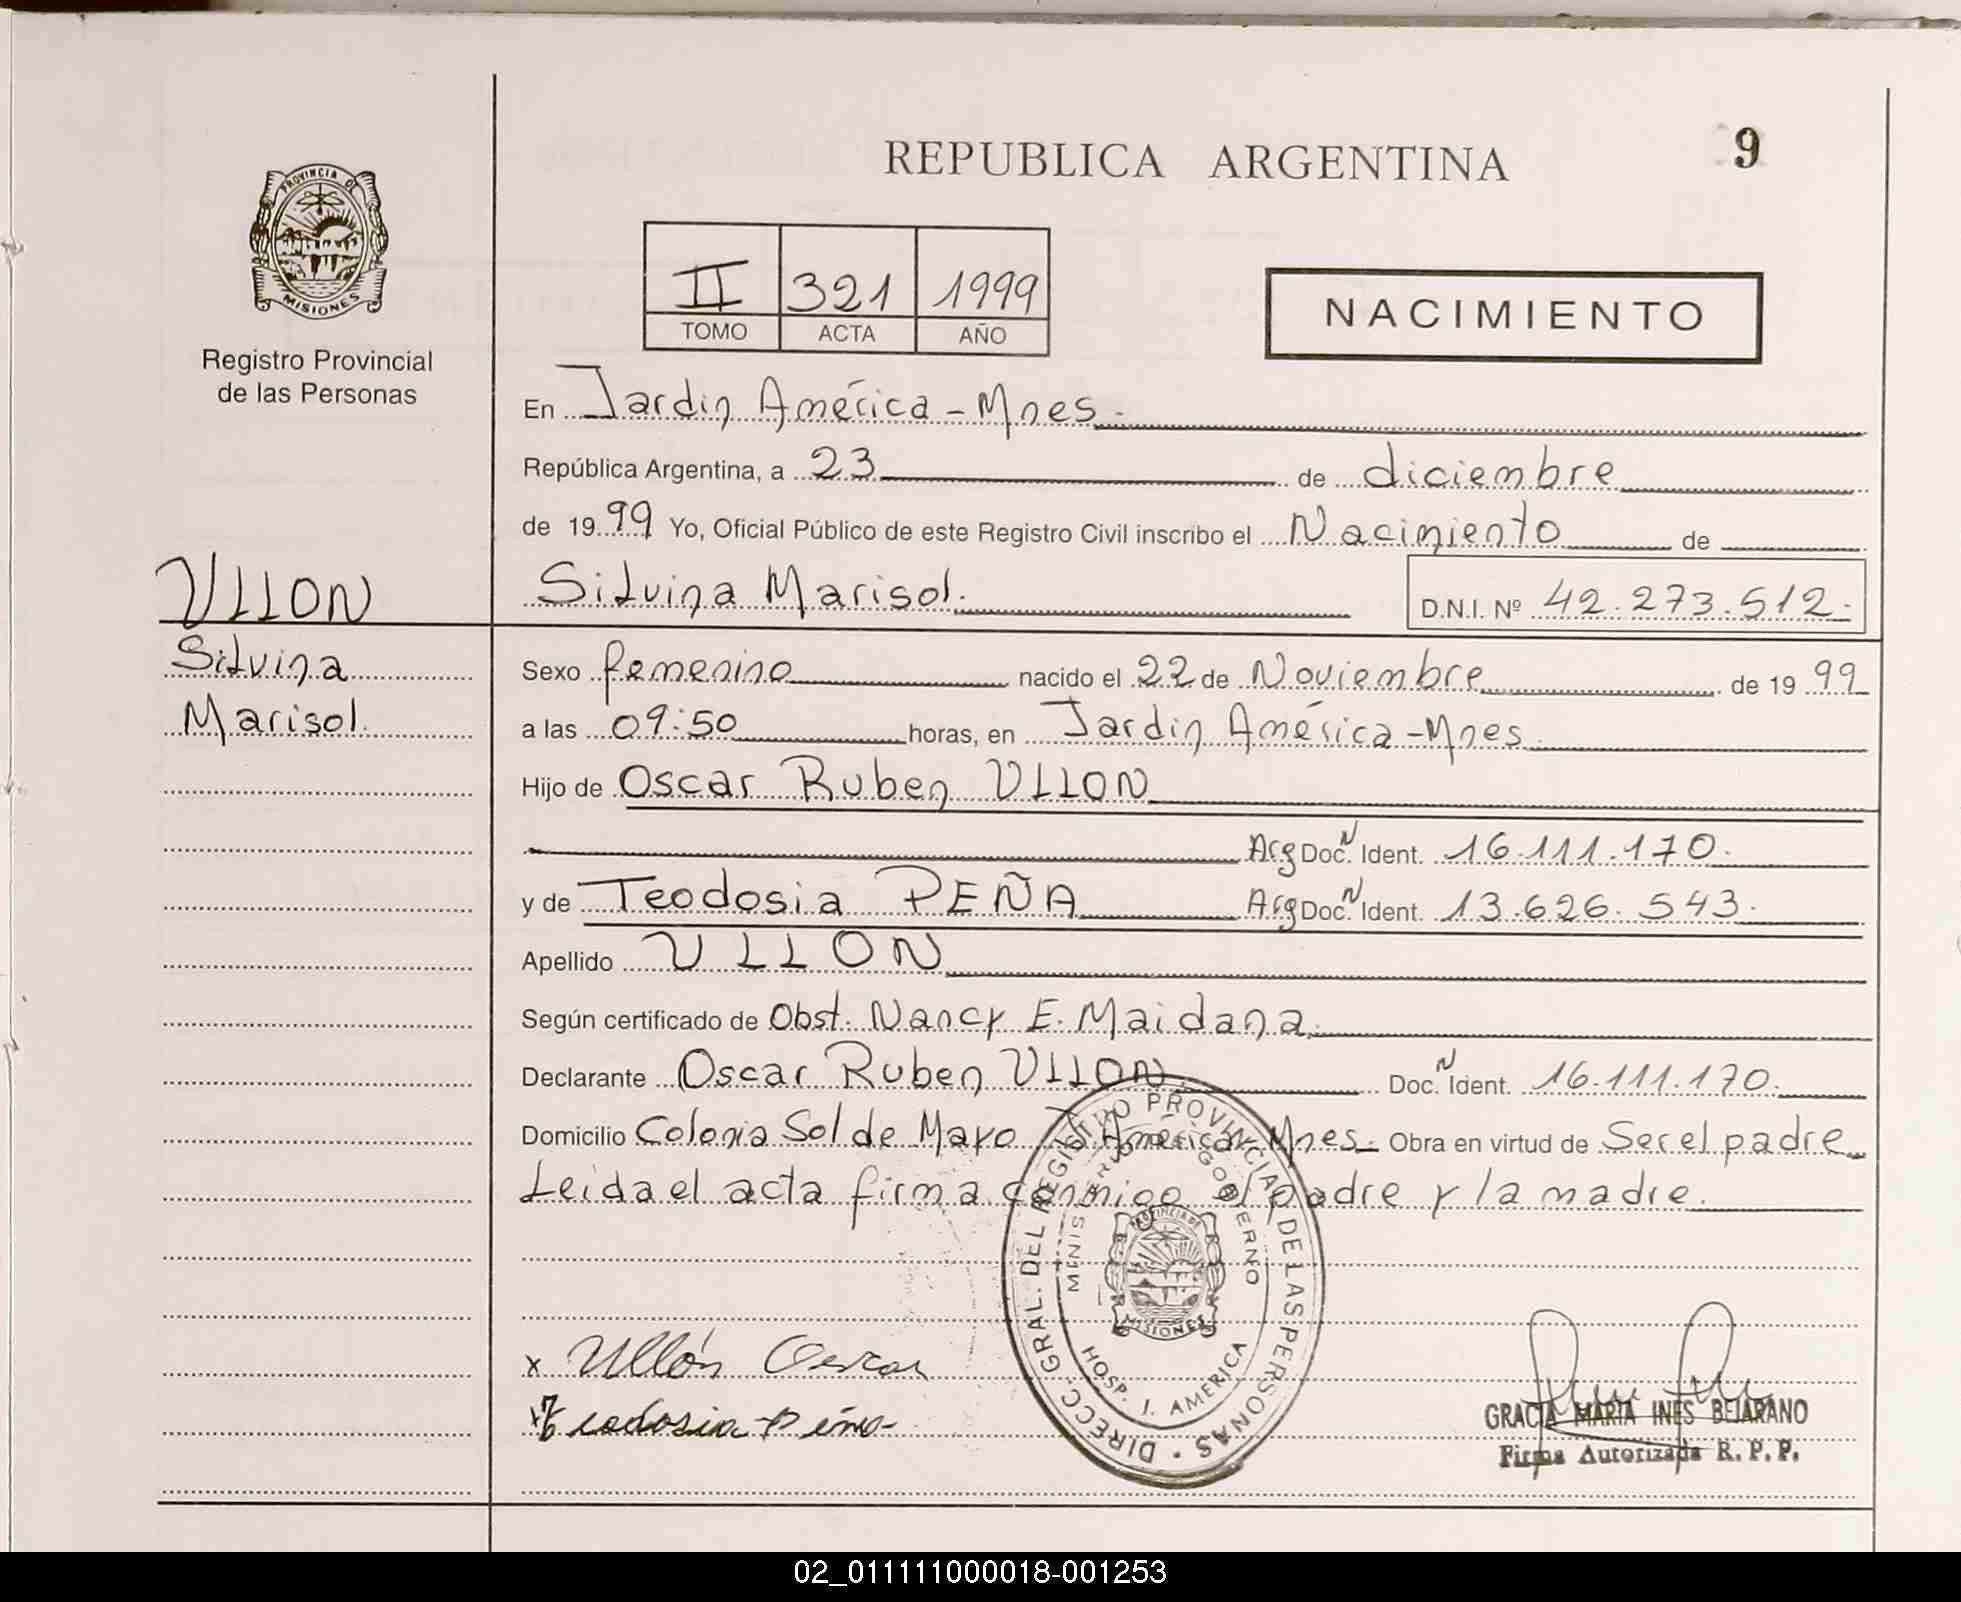 REPUBLICA ARGENTINA
9
PROVINCIA DE
MISIONES
Registro Provincial
de las Personas
II 321 1999
TOMO ACTA AÑO
NACIMIENTO
En Jardin América - Mnes.
República Argentina, a 23 de diciembre
de 1999 Yo, Oficial Público de este Registro Civil inscribo el Nacimiento de
Silvina Marisol. D.N.I. Nº 42.273.512.
ULLON
Silvina
Marisol.
Sexo femenino nacido el 22 de Noviembre de 1999
a las 09:50 horas, en Jardin América - Mnes.
Hijo de Oscar Ruben ULLON
Arg Doc. N Ident. 16.111.170.
y de Teodosia PEÑA Arg Doc. N Ident. 13.626.543.
Apellido ULLON
Según certificado de Obst. Nancy E. Maidana.
Declarante Oscar Ruben ULLON Doc. N Ident. 16.111.170.
Domicilio Colonia Sol de Mayo J. América Mnes. Obra en virtud de Ser el padre
Leida el acta firma conmigo el padre y la madre.
DIRECC. GRAL. DEL REGISTRO PROVINCIAL DE LAS PERSONAS
MINISTERIO DE GOBIERNO
PROVINCIA DE
MISIONES
HOSP. J. AMERICA
x Ullón Oscar
x Teodosia Peña
GRACIA MARIA INES BEJARANO
Firma Autorizada R. P. P.
02_011111000018-001253